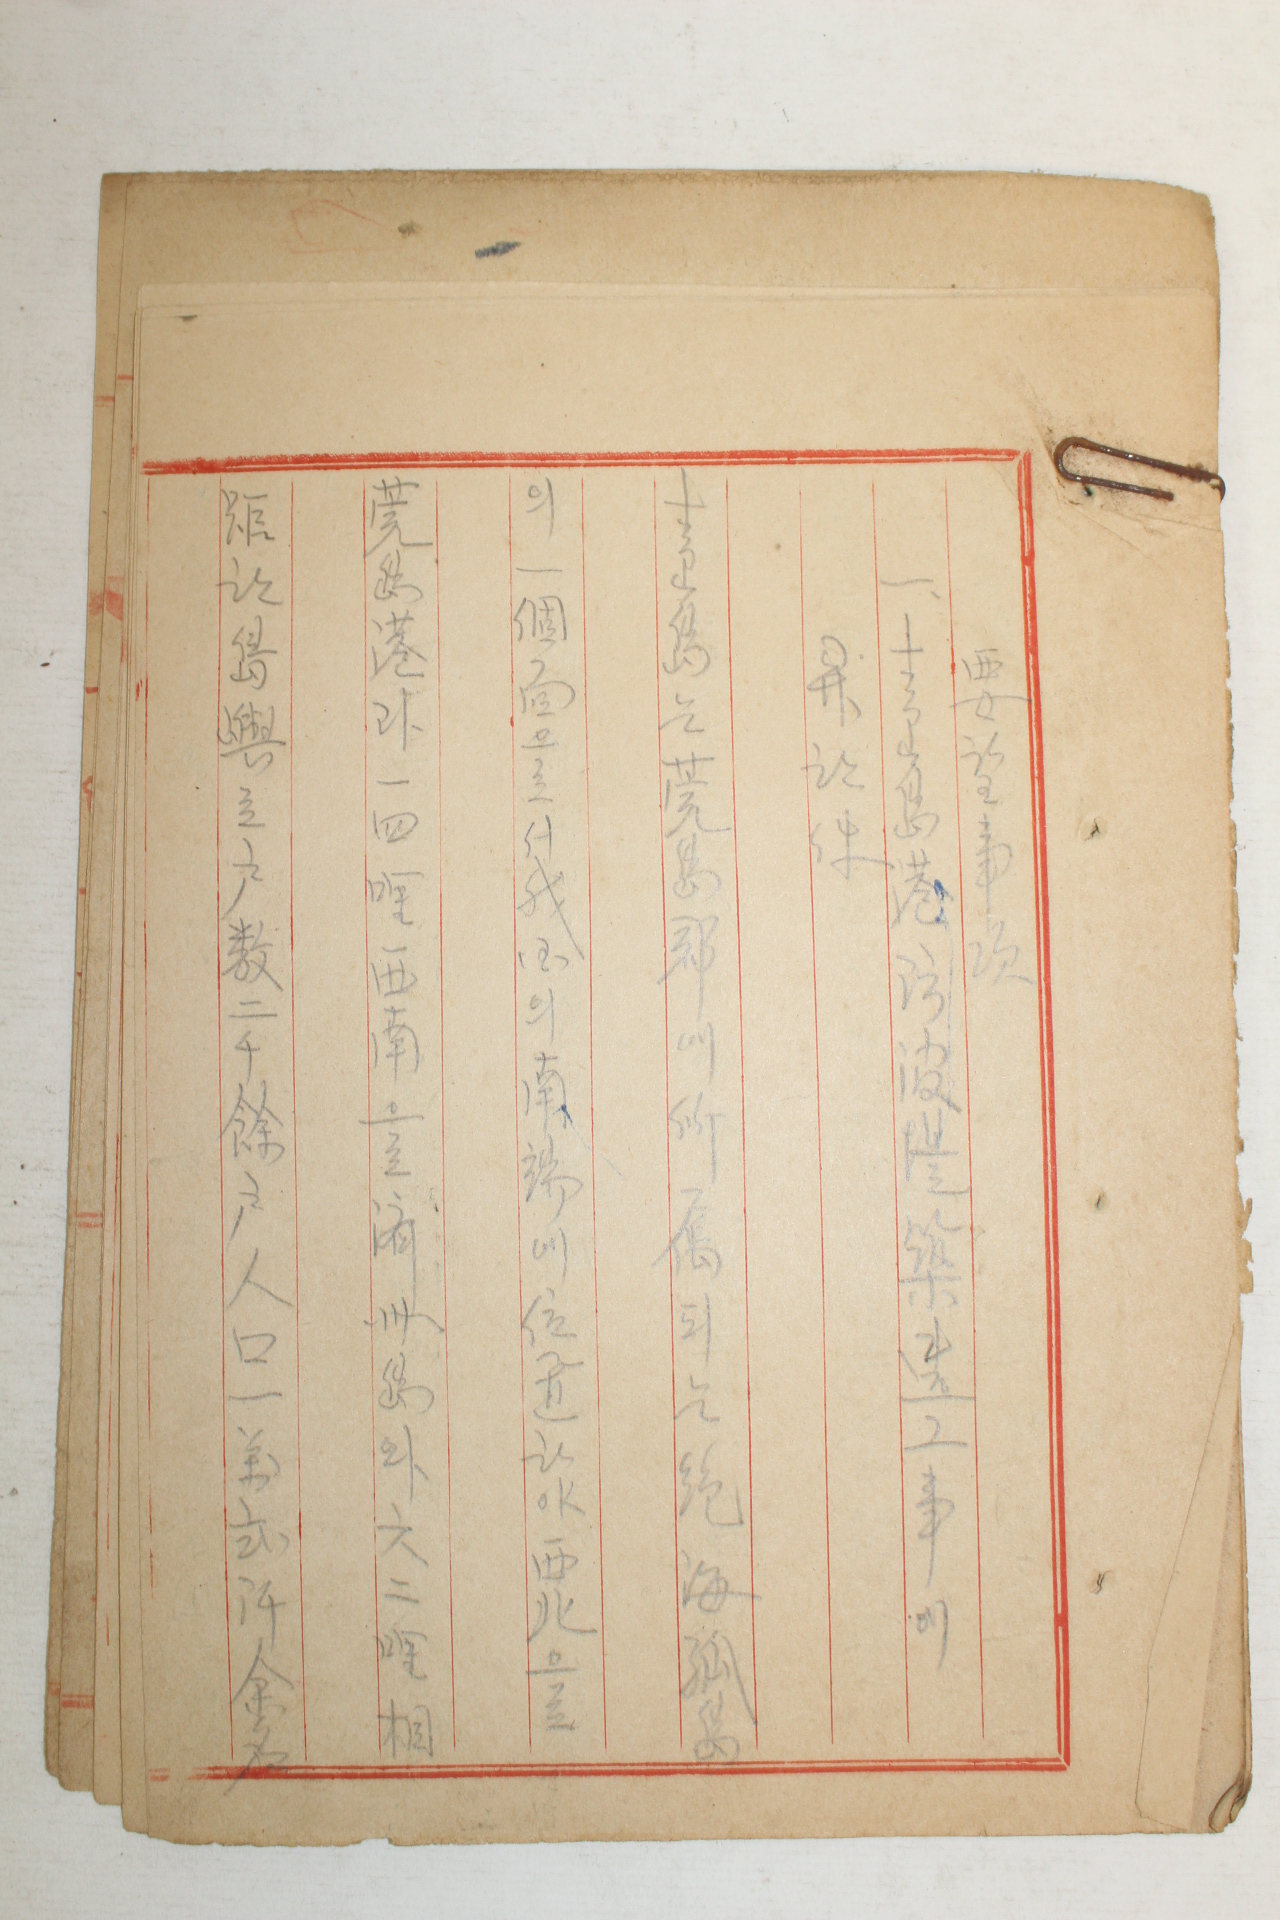 要望事項
一、靑島港防波堤築造工事에
關한 件
靑島는 莞島郡에 所屬되는 絶海孤島
의 一個面으로서 我国의 南端에 位置하야 西北으로
莞島港과 一四哩 西南으로 濟州島와 六二哩 相
距한 島嶼로 戶數 二千餘戶 人口 一萬弐阡余名